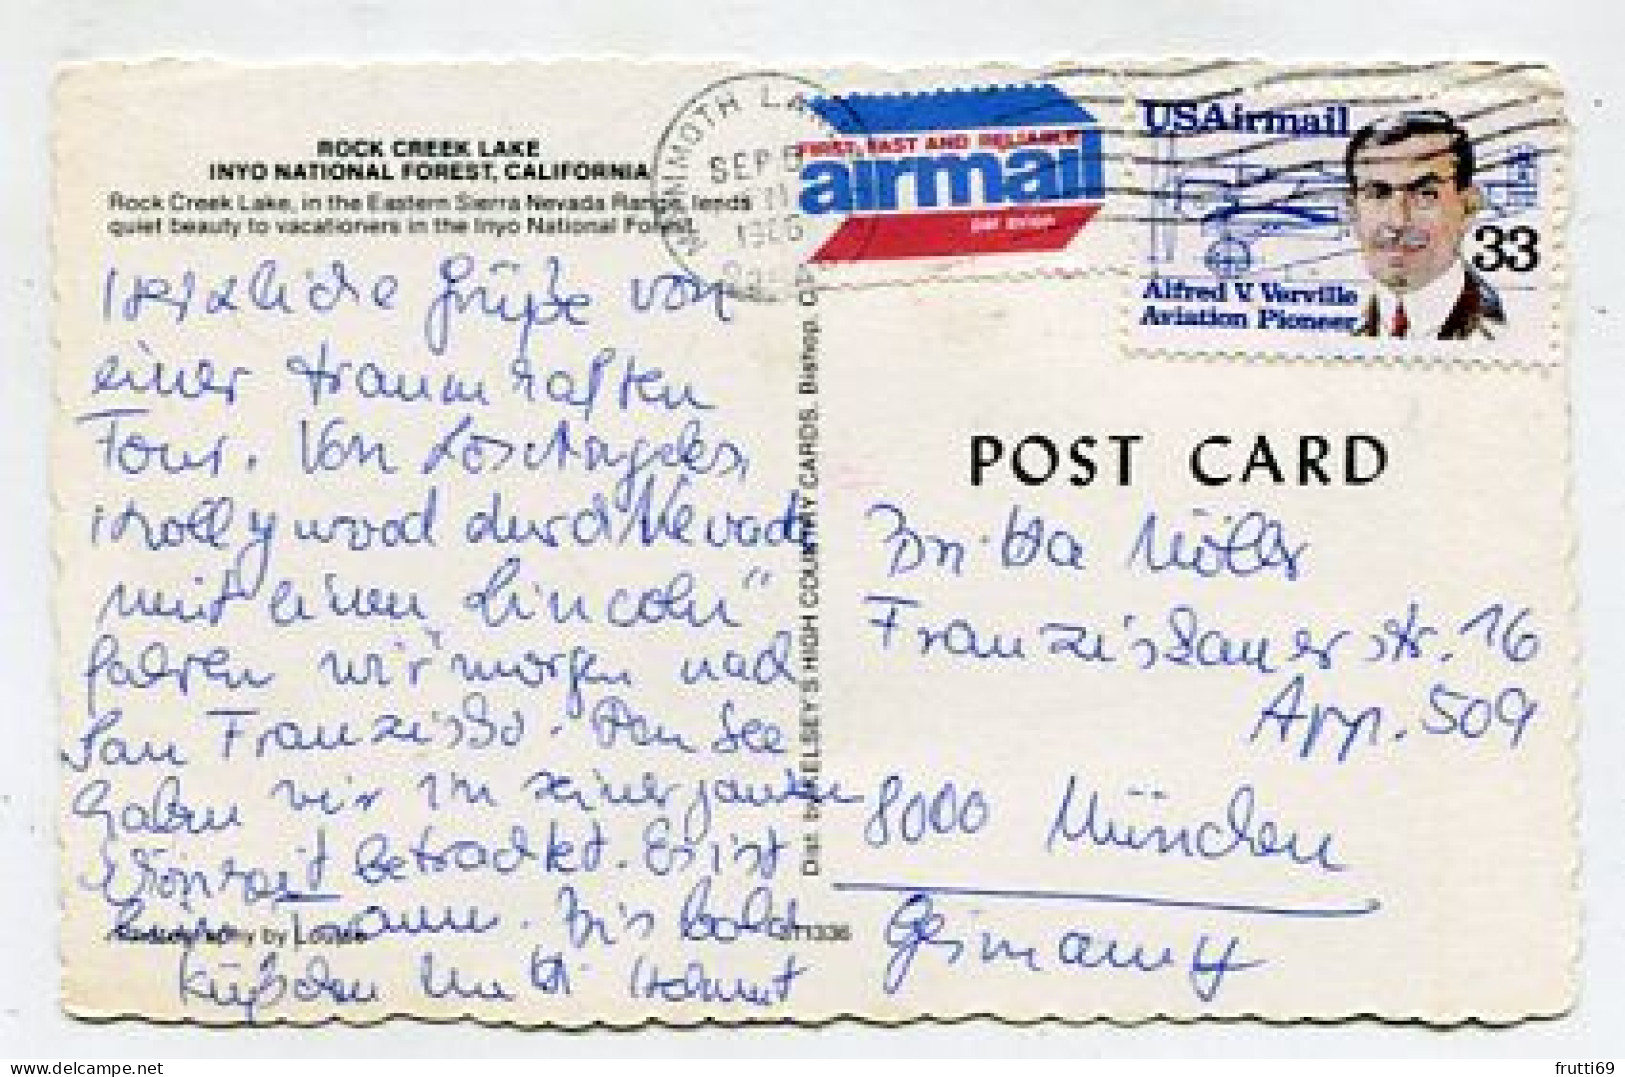 ROCK CREEK LAKE
INYO NATIONAL FOREST, CALIFORNIA
Rock Creek Lake, in the Eastern Sierra Nevada Range, lends
quiet beauty to vacationers in the Inyo National Forest.
Herzliche Grüße von
einer traumhaften
Tour. Von Los Angeles,
Hollywood durch Nevada
mit einem "Lincoln"
fahren wir morgen nach
San Franzisko. Den See
haben wir in seiner ganzen
betrachtet. Es ist
ein Traum. Bis bald
Küßchen Helmut
Photography by
Dist. by KELSEY'S HIGH COUNTRY CARDS, Bishop, CA
MAMMOTH LAKES
SEP
1986
FIRST, FAST AND RELIABLE
airmail
par avion
USAirmail
33
Alfred V. Verville
Aviation Pioneer
POST CARD
Möller
Franziskanerstr. 16
App. 509
8000 München
Germany
frutti69